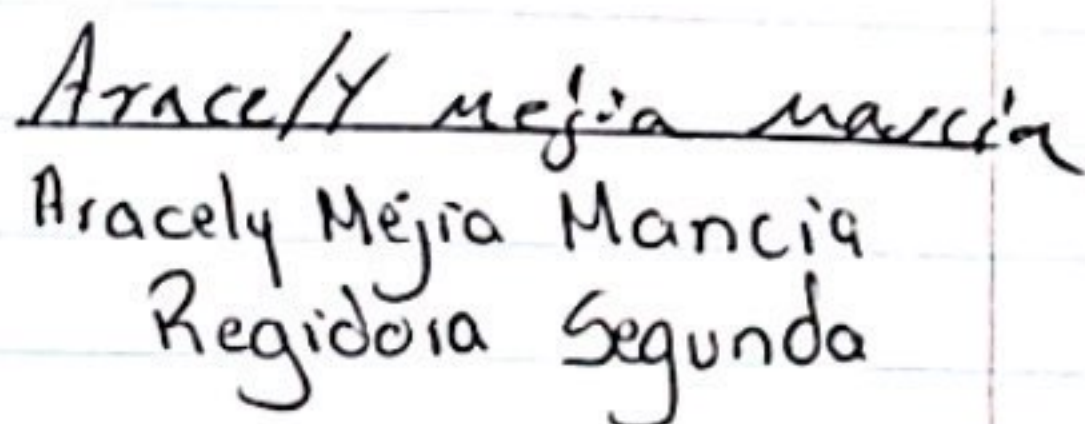 Aracely Mejia Mancia
Aracely Mejía Mancia
Regidora Segunda